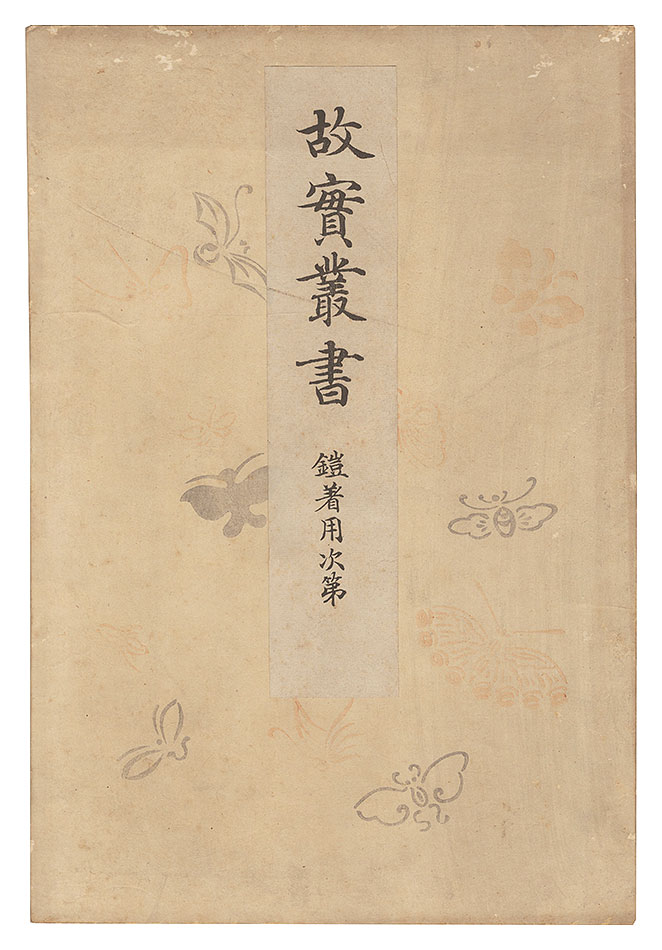 故實叢書
鎧著用次第